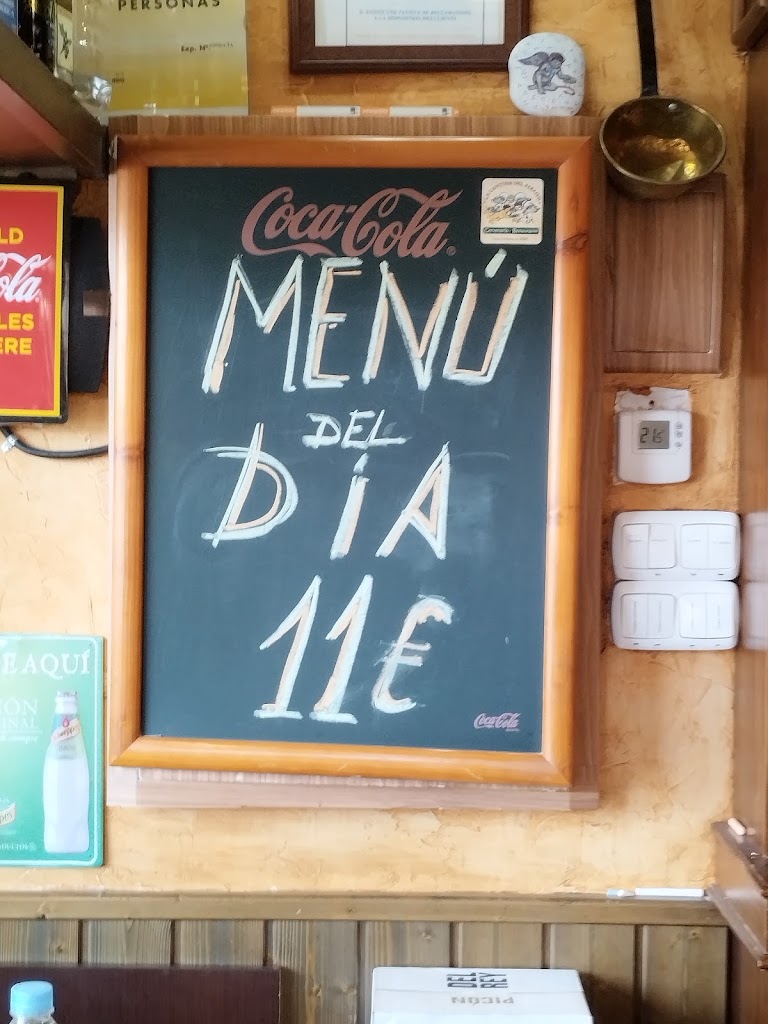 PERSONAS
Coca-Cola
MENÚ
DEL
DÍA
11€
Coca-Cola
LD
ola
LES
ERE
216
E AQUÍ
IÓN
INAL
DEL
REY
PICÓN